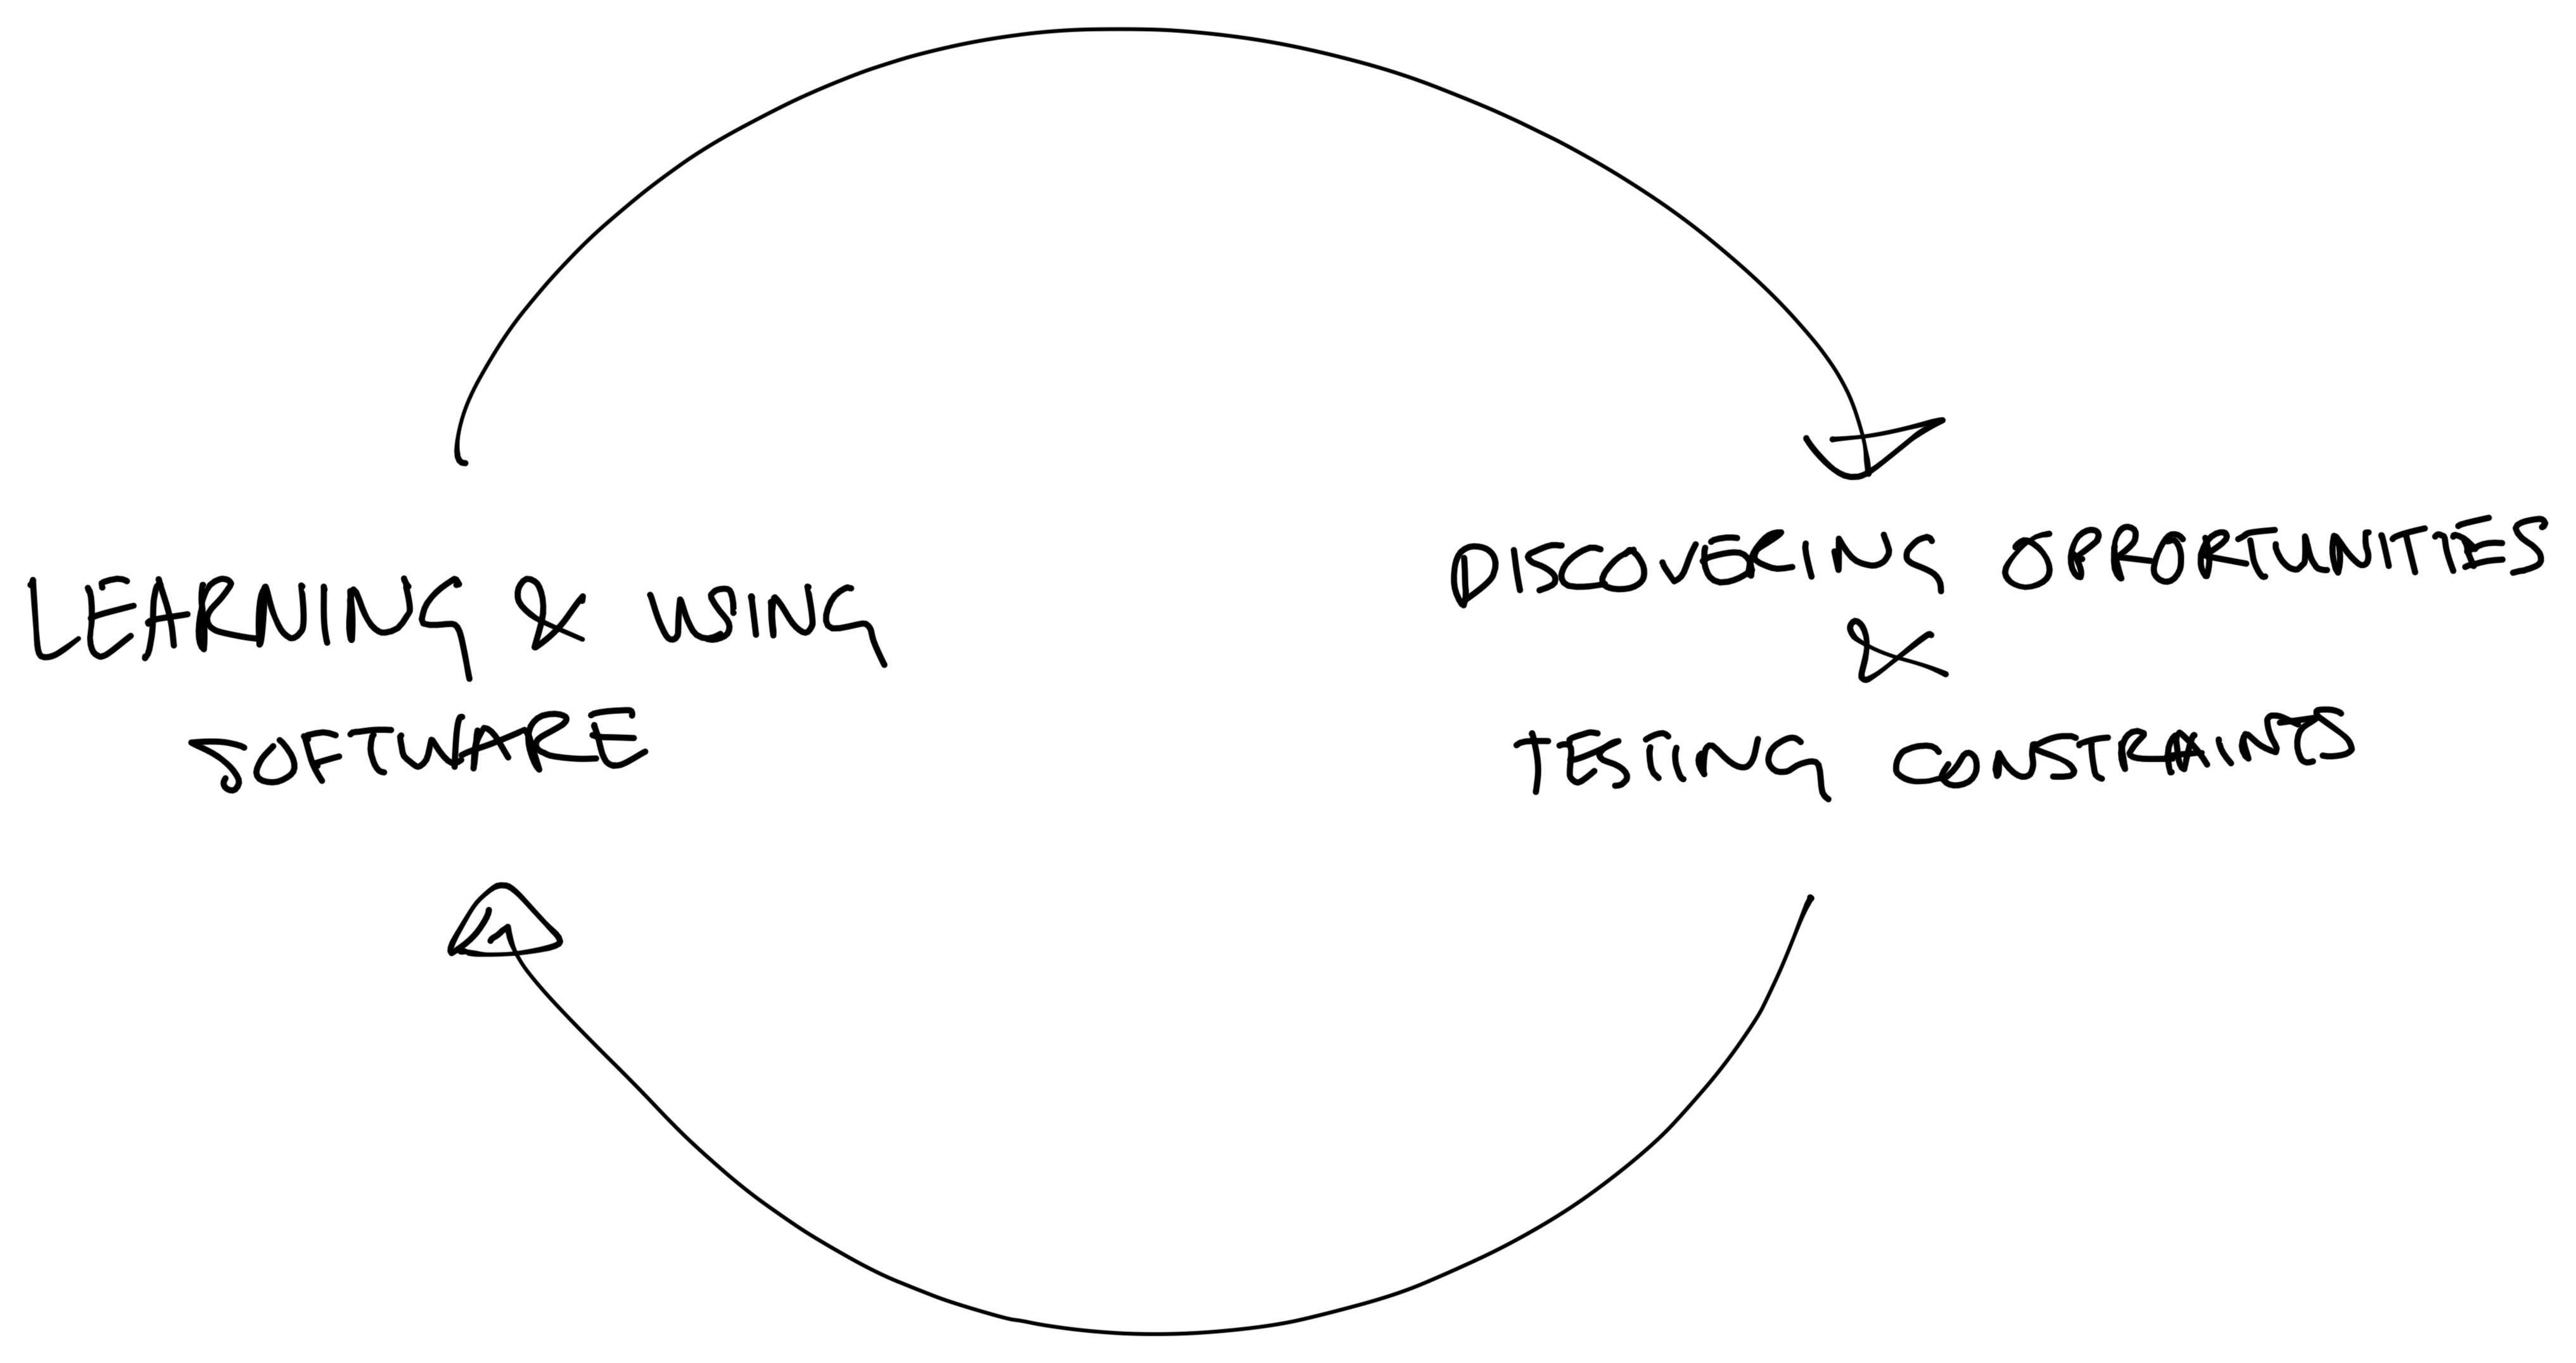 LEARNING & USING
SOFTWARE
DISCOVERING OPPORTUNITIES
&
TESTING CONSTRAINTS